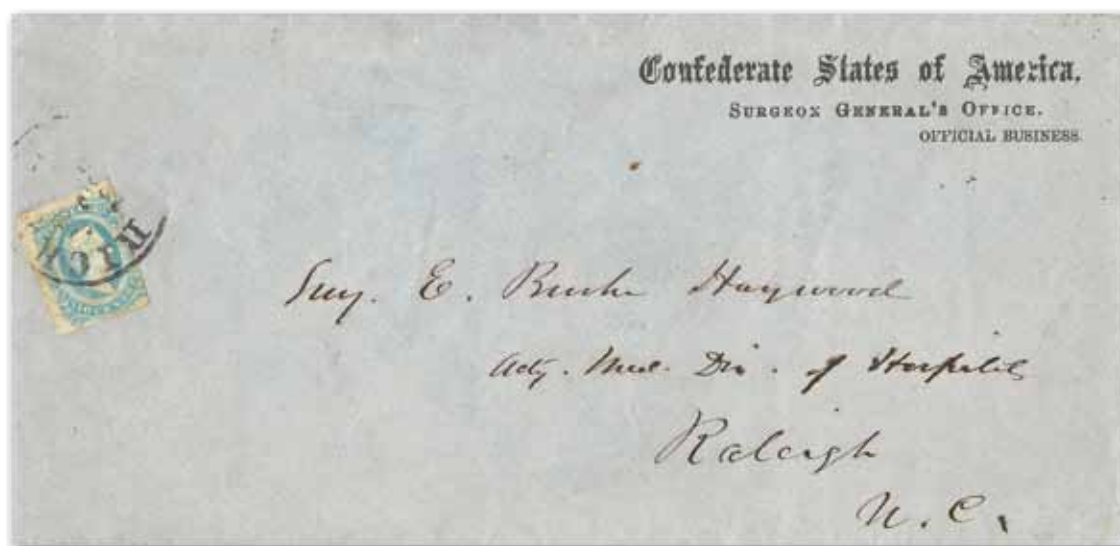 Confederate States of America.
SURGEON GENERAL'S OFFICE.
OFFICIAL BUSINESS.
RICH
Surg. E. Burke Haywood
Actg. Med. Dir. of Hospitals
Raleigh
N. C.